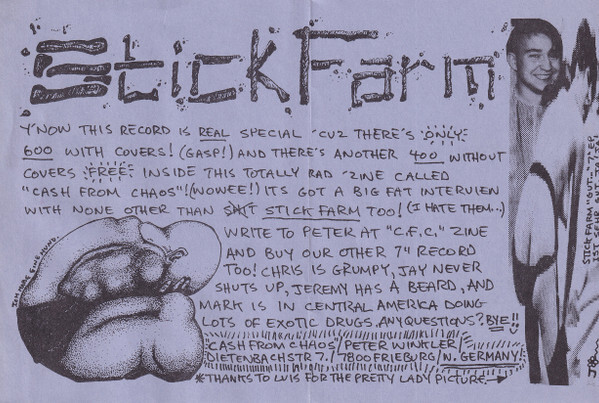 StickFarm
Y'NOW THIS RECORD IS REAL SPECIAL 'CUZ THERE'S ONLY
600 WITH COVERS! (GASP!) AND THERE'S ANOTHER 400 WITHOUT
COVERS FREE INSIDE THIS TOTALLY RAD 'ZINE CALLED
"CASH FROM CHAOS"! (WOWEE!) ITS GOT A BIG FAT INTERVIEW
WITH NONE OTHER THAN SH!T STICK FARM TOO! (I HATE THEM...)
WRITE TO PETER AT "C.F.C." ZINE
AND BUY OUR OTHER 7" RECORD
TOO! CHRIS IS GRUMPY, JAY NEVER
SHUTS UP, JEREMY HAS A BEARD, AND
MARK IS IN CENTRAL AMERICA DOING
LOTS OF EXOTIC DRUGS. ANY QUESTIONS? BYE!!
CASH FROM CHAOS / PETER WINKLER /
DIETENBACHSTR 7. / 7800 FRIEBURG / W. GERMANY
*THANKS TO LUIS FOR THE PRETTY LADY PICTURE
STICK FARM "OUT..." 7" EP!
IST SEHR GUT JA